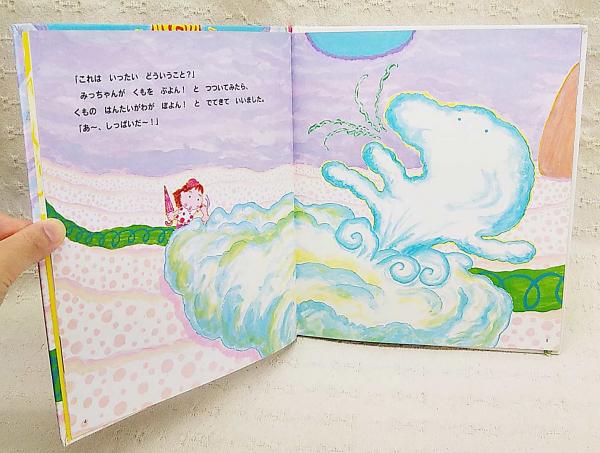 「これは いったい どういうこと?」
みっちゃんが くもを ぷよん! と つついてみたら、
くもの はんたいがわが ぽよん! と でてきて いいました。
「あ〜、しっぱいだ〜!」
4